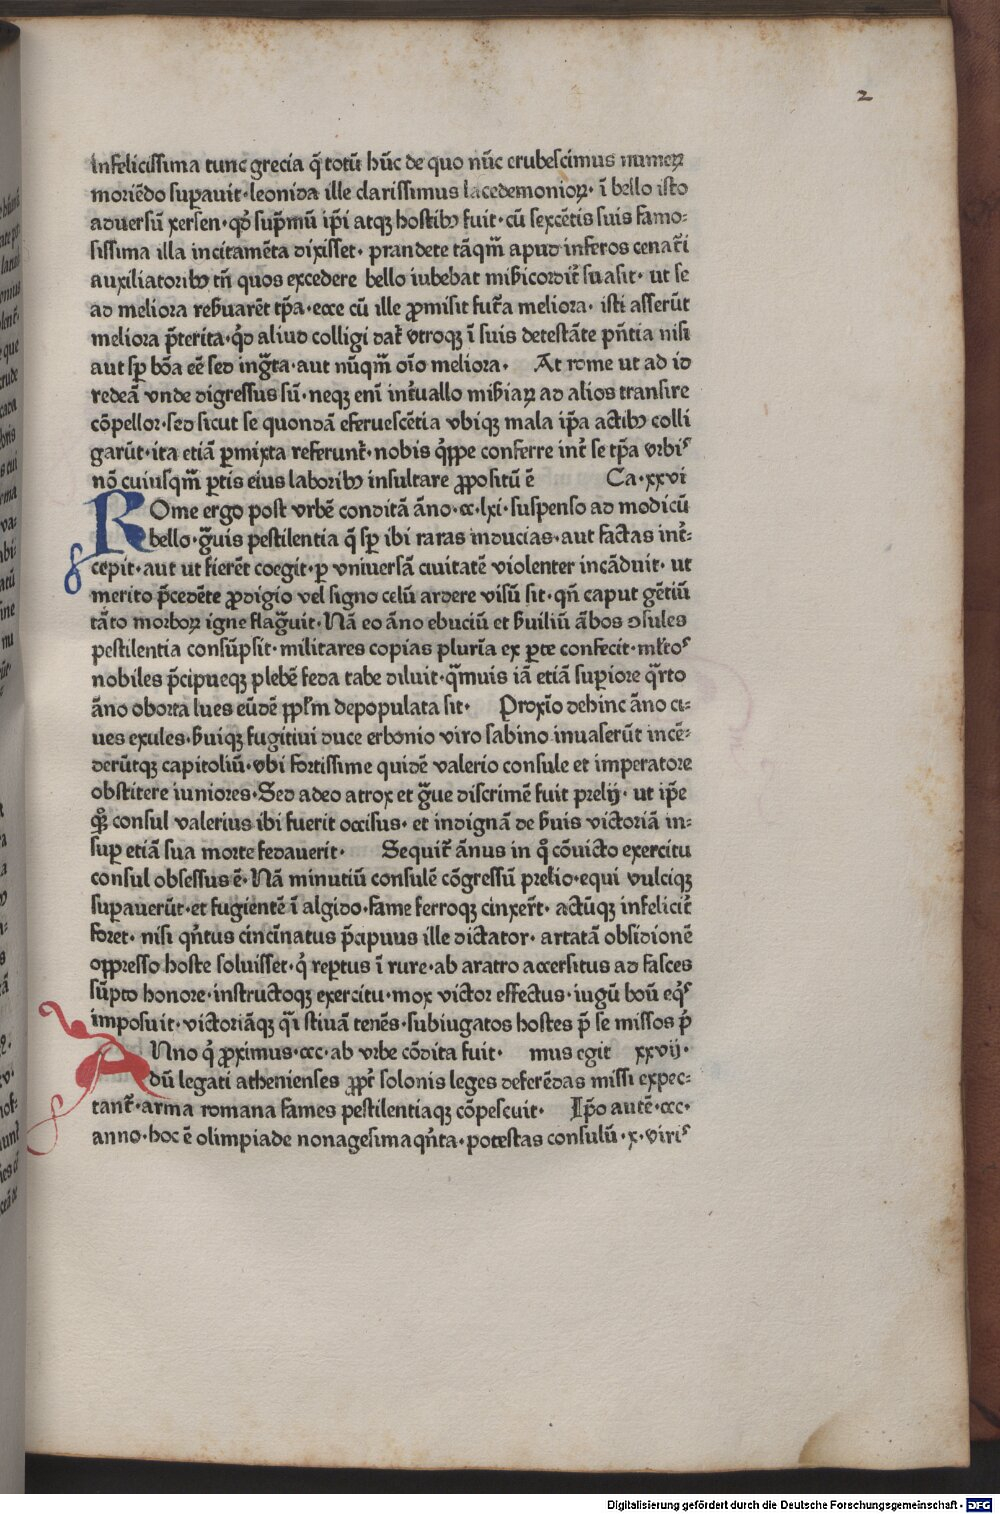 2
infelicissima tunc grecia q̃ totũ hũc de quo nũc erubescimus numeꝝ
moriẽdo supauit·leonida ille clarissimus lacedemonioꝝ·ĩ bello isto
aduersũ xersen·qđ sup̃mũ ip̃i atqꝫ hostibꝰ fuit·cũ sexcẽtis suis famo⸗
sissima illa incitamẽta dixisset·prandete tãqm̃ apud inferos cenat̃i
auxiliatoribꝰ tñ quos excedere bello iubebat miẜicordit̃ suasit·ut se
ad meliora reẜuarẽt tp̃a·ecce cũ ille ꝓmisit fut̃a meliora·isti asserũt
meliora p̃terita·qđ aliud colligi dat̃ vtroqꝫ ĩ suis detestãte p̃ñtia nisi
aut sp̃ bõa eẽ sed ingr̃ta·aut nũqm̃ oĩo meliora· At rome ut ad id
redeã vnde digressus sũ·neqꝫ enĩ int̃uallo miẜiaꝝ ad alios transire
cõpellor·sed sicut se quondã eferuescẽtia vbiqꝫ mala ip̃a actibꝰ colli
garũt·ita etiã ꝑmixta referunt̃·nobis q̃ppe conferre int̃ se tp̃a vrbiˢ
nõ cuiusqm̃ ꝑtis eius laboribꝰ insultare ꝓpositũ ẽ Ca·xxvi
ROme ergo post vrbẽ conditã ãno·cc·lxi·suspenso ad modicũ
bello·gr̃uis pestilentia q̃ sp̃ ibi raras inducias·aut factas int̃⸗
cepit·aut ut fierẽt coegit·ꝑ vniuersã ciuitatẽ violenter incãduit·ut
merito p̃cedẽte ꝓdigio vel signo celũ ardere visũ sit·qñ caput gẽtiũ
tãto morboꝝ igne flagr̃uit·Nã eo ãno ebuciũ et ẜuiliũ ãbos ꝯsules
pestilentia consũpsit·militares copias plurĩa ex ꝑte confecit·ml̃toˢ
nobiles p̃cipueqꝫ plebẽ feda tabe diluit·qm̃uis iã etiã supiore q̃rto
ãno oborta lues eũdẽ ppl̃m depopulata sit· Proxĩo dehinc ãno ci⸗
ues exules·ẜuiqꝫ fugitiui duce erbonio viro sabino inuaserũt incẽ⸗
derũtqꝫ capitoliũ·vbi fortissime quidẽ valerio consule et imperatore
obstitere iuniores·Sed adeo atrox et gr̃ue discrimẽ fuit prelij·ut ip̃e
qꝫ̃ consul valerius ibi fuerit occisus·et indignã de ẜuis victoriã in⸗
sup etiã sua morte fedauerit· Sequit̃ ãnus in q̃ cõuicto exercitu
consul obsessus ẽ·Nã minutiũ consulẽ cõgressũ prelio·equi vulciqꝫ
supauerũt·et fugientẽ ĩ algido·fame ferroqꝫ cinxer̃t·actũqꝫ infelicit̃
foret·nisi qñtus cincĩnatus p̃cipuus ille dictator·artatã obsidionẽ
oppresso hoste soluisset·q̃ reꝑtus ĩ rure·ab aratro accersitus ad fasces
sũpto honore·instructoqꝫ exercitu·mox victor effectus·iugũ boũ eq̃ˢ
imposuit·victoriãqꝫ q̃i stiuã tenẽs·subiugatos hostes p̃ se missos p̃
ANno q̃ ꝓximus·ccc·ab vrbe cõdita fuit· mus egit xxvij·
dũ legati athenienses ꝓpt̃ solonis leges deferẽdas missi expec⸗
tant̃·arma romana fames pestilentiaqꝫ cõpescuit· Ip̃o autẽ·ccc·
anno·hoc ẽ olimpiade nonagesima qñta·potestas consulũ·x·viriˢ
Digitalisierung gefördert durch die Deutsche Forschungsgemeinschaft - DFG